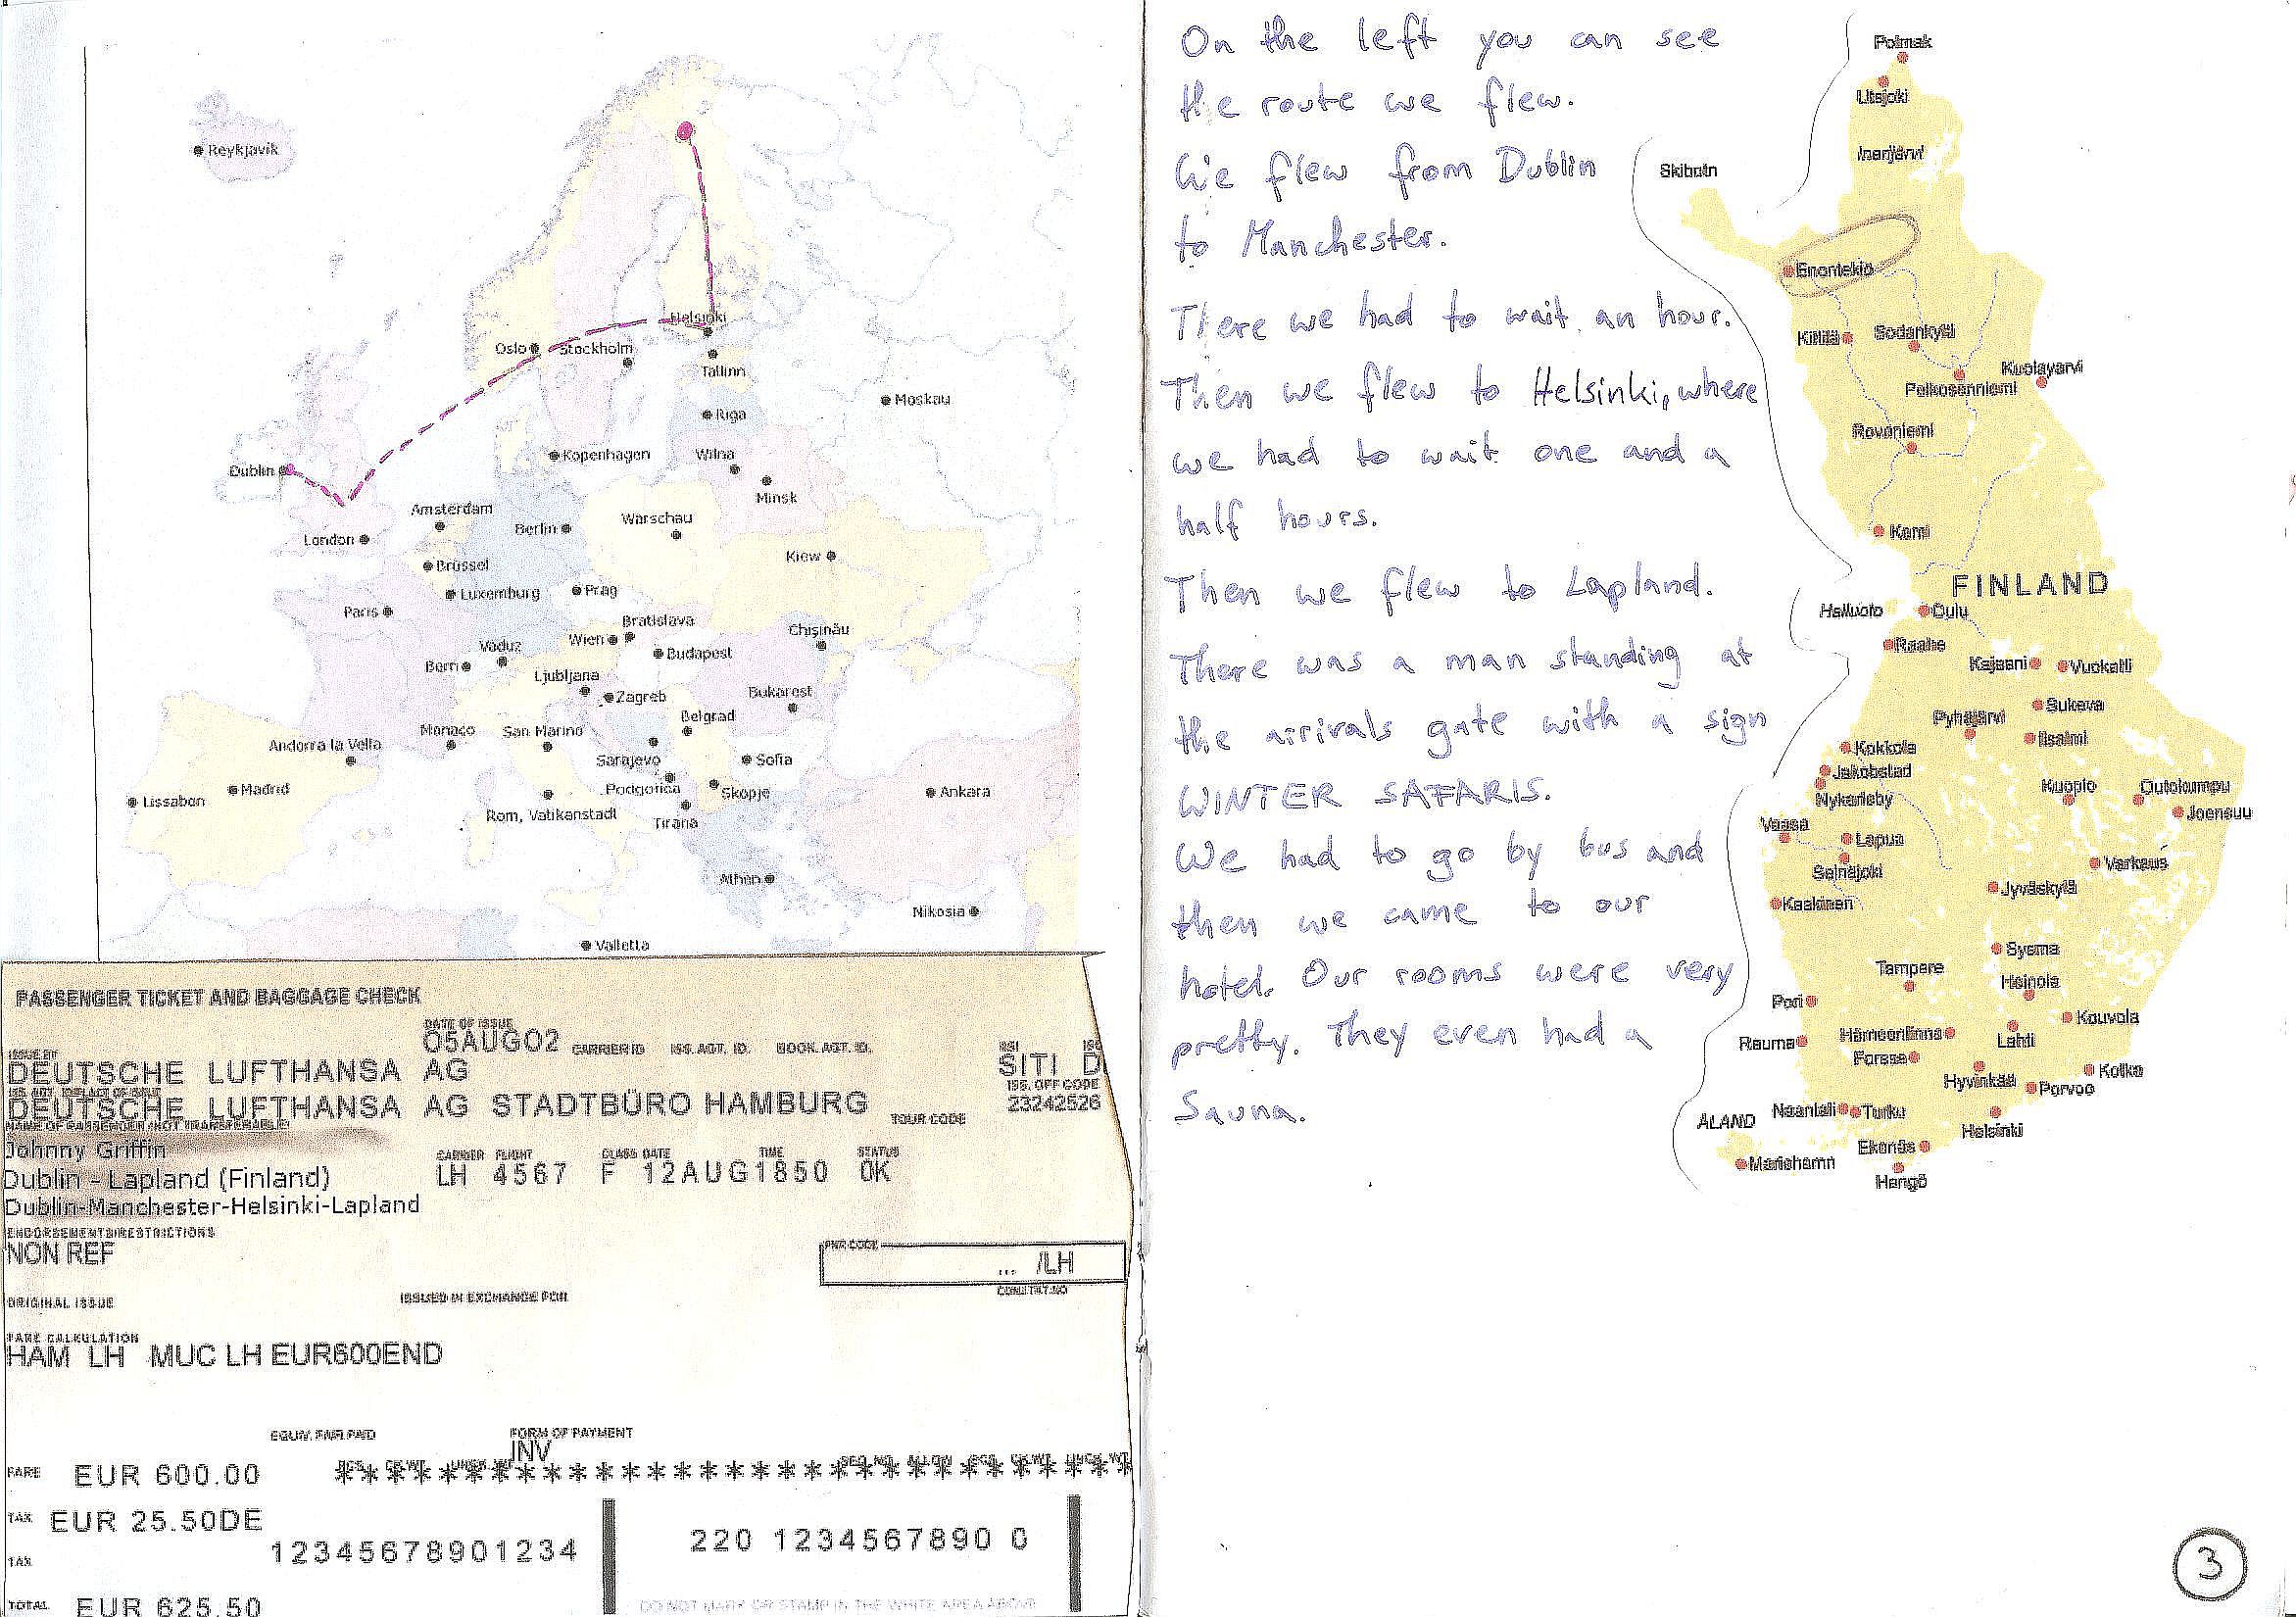 Reykjavik
Helsinki
Oslo
Stockholm
Tallinn
Moskau
Riga
Dublin
Kopenhagen
Wilna
Minsk
Amsterdam
Berlin
Warschau
London
Kiew
Brüssel
Luxemburg
Prag
Paris
Bratislava
Wien
Chişinău
Vaduz
Budapest
Bern
Ljubljana
Zagreb
Bukarest
Belgrad
Monaco
San Marino
Andorra la Vella
Sarajevo
Sofia
Madrid
Lissabon
Podgorica
Skopje
Ankara
Rom, Vatikanstadt
Tirana
Athen
Nikosia
Valletta
PASSENGER TICKET AND BAGGAGE CHECK
DATE OF ISSUE
05AUG02 CARRIER ID ISS. AGT. ID. BOOK. AGT. ID.
ISSUE BY
DEUTSCHE LUFTHANSA AG
SITI D
ISS. OFF CODE
DEUTSCHE LUFTHANSA AG STADTBÜRO HAMBURG
23242526
TOUR CODE
NAME OF PASSENGER (NOT TRANSFERABLE)
Johnny Griffin
CARRIER FLIGHT CLASS DATE TIME STATUS
Dublin - Lapland (Finland)
LH 4567 F 12AUG1850 OK
Dublin-Manchester-Helsinki-Lapland
ENDORSEMENTS/RESTRICTIONS
NON REF
PNR CODE
... /LH
ORIGINAL ISSUE
ISSUED IN EXCHANGE FOR
FARE CALCULATION
HAM LH MUC LH EUR600END
EQUIV. FAIR PAID
FORM OF PAYMENT
INV
FARE EUR 600.00
TAX EUR 25.50DE
TAX 12345678901234
220 1234567890 0
TOTAL EUR 625.50
DO NOT MARK OR STAMP IN THE WHITE AREA ABOVE
On the left you can see
the route we flew.
We flew from Dublin
to Manchester.
There we had to wait an hour.
Then we flew to Helsinki, where
we had to wait one and a
half hours.
Then we flew to Lapland.
There was a man standing at
the arrivals gate with a sign
WINTER SAFARIS.
We had to go by bus and
then we came to our
hotel. Our rooms were very
pretty. They even had a
Sauna.
Polmak
Utsjoki
Inarijärvi
Skibotn
Enontekiö
Kittilä
Sodankylä
Kuolayarvi
Pelkosenniemi
Rovaniemi
Kemi
FINLAND
Hailuoto
Oulu
Raahe
Kajaani
Vuokatti
Sukeva
Pyhäjärvi
Iisalmi
Kokkola
Jakobstad
Nykarleby
Kuopio
Outokumpu
Joensuu
Vaasa
Lapua
Seinäjoki
Varkaus
Jyväskylä
Kaskinen
Sysma
Tampere
Heinola
Pori
Kouvola
Rauma
Hämeenlinna
Lahti
Forssa
Hyvinkää
Kotka
Porvoo
ÅLAND
Naantali
Turku
Helsinki
Ekenäs
Mariehamn
Hangö
3